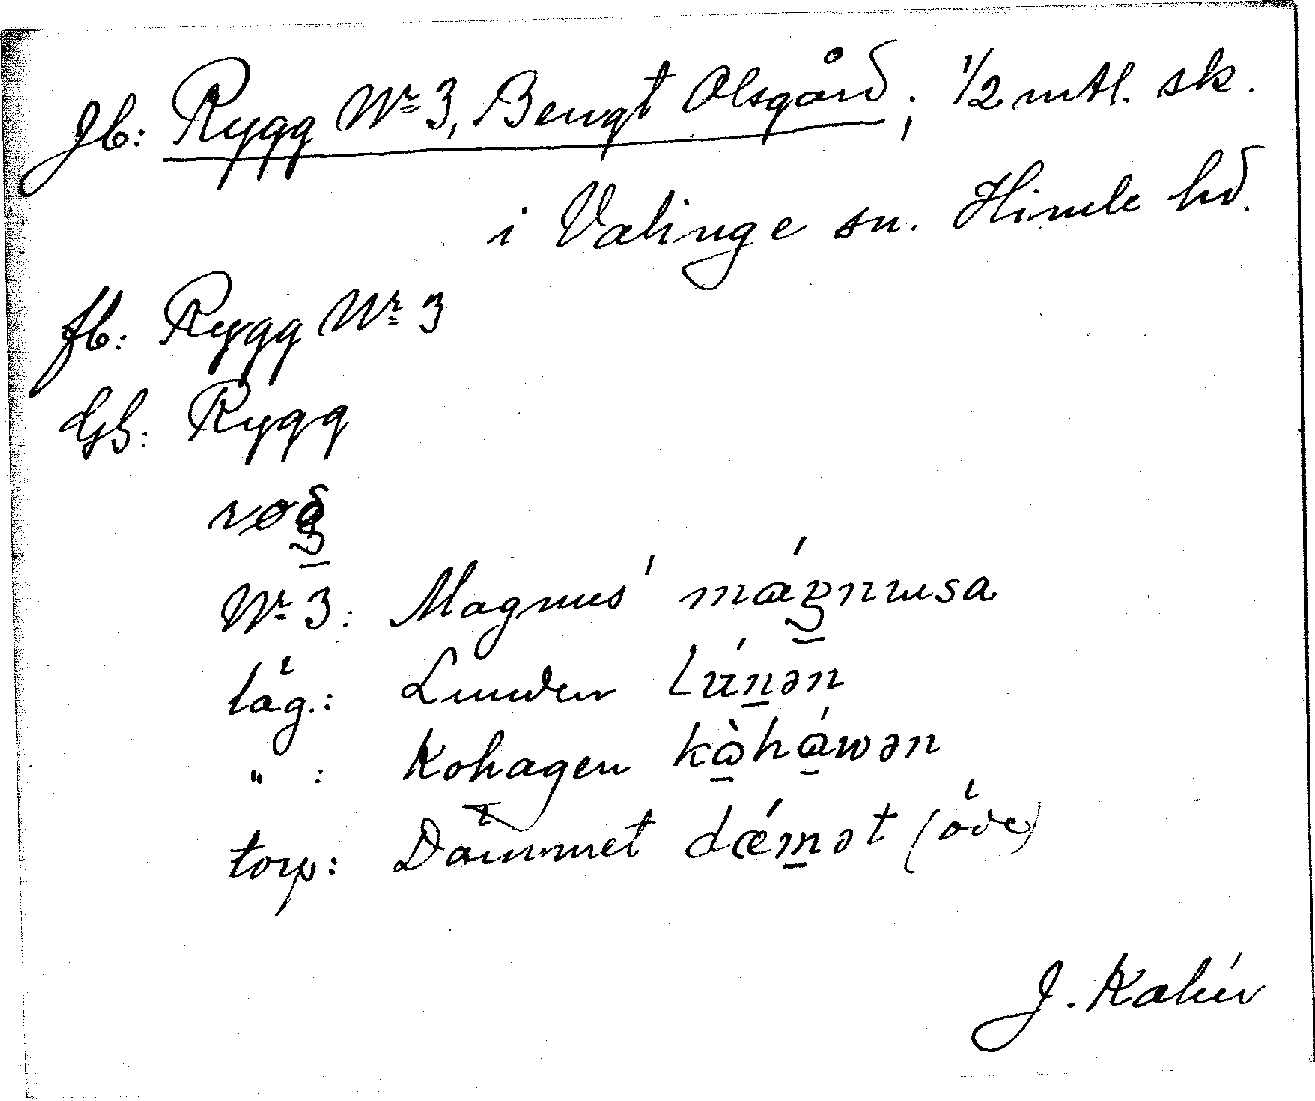 Jb: Rygg Nr 3, Bengt Olsgård; 1/2 mtl. sk.
i Valinge sn. Himle hd.
fb: Rygg Nr 3
Gs: Rygg
Nr 3: Magnus' mágnusa
läg.: Lunden lúnən
" : Kohagen kòháwən
torp: Dämmet dǽmət (öde)
J. Kalén